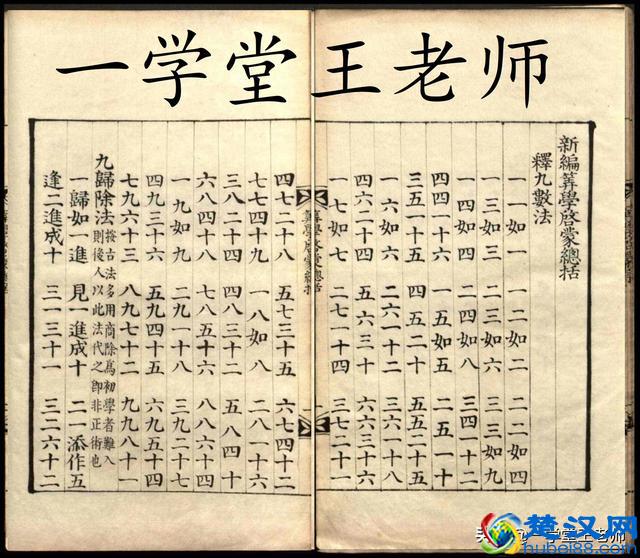 一学堂王老师
新編筭學啓蒙總括
釋九數法
一一如一 一二如二 二二如四
一三如三 二三如六 三三如九
一四如四 二四如八 三四一十二
四四一十六 一五如五 二五一十
三五一十五 四五二十 五五二十五
一六如六 二六一十二 三六一十八
四六二十四 五六三十 六六三十六
一七如七 二七一十四 三七二十一
筭學啓蒙總括
四七二十八 五七三十五 六七四十二
七七四十九 一八如八 二八一十六
三八二十四 四八三十二 五八四十
六八四十八 七八五十六 八八六十四
一九如九 二九一十八 三九二十七
四九三十六 五九四十五 六九五十四
七九六十三 八九七十二 九九八十一
九歸除法 按古法多用商除爲初學者難入
則後人以此法代之即非正術也
一歸如一進 見一進成十 二一添作五
逢二進成十 三一三十一 三二六十二
学堂王老师
楚汉网
hubei88.com